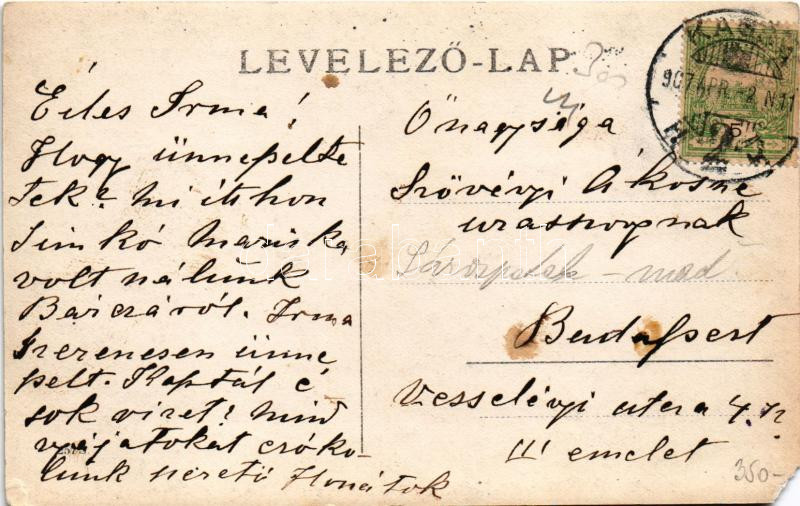 LEVELEZŐ-LAP
KASSA
907 APR 2 N 11
Édes Irma!
Hogy ünnepelte
tek? mi itthon
Simkó Mariska
volt nálunk
Bárczáról. Irma
szerencsen ünne
pelt. Kaptál é
sok vizet? Mind
nyájatokat csóko-
lunk szerető Ilonátok
Őnagysága
Szövényi Ákosné
uraszonynak
Sárospatak - mad.
Budapest
Vesselényi utcza 4. sz
III emelet
350-
darabanth